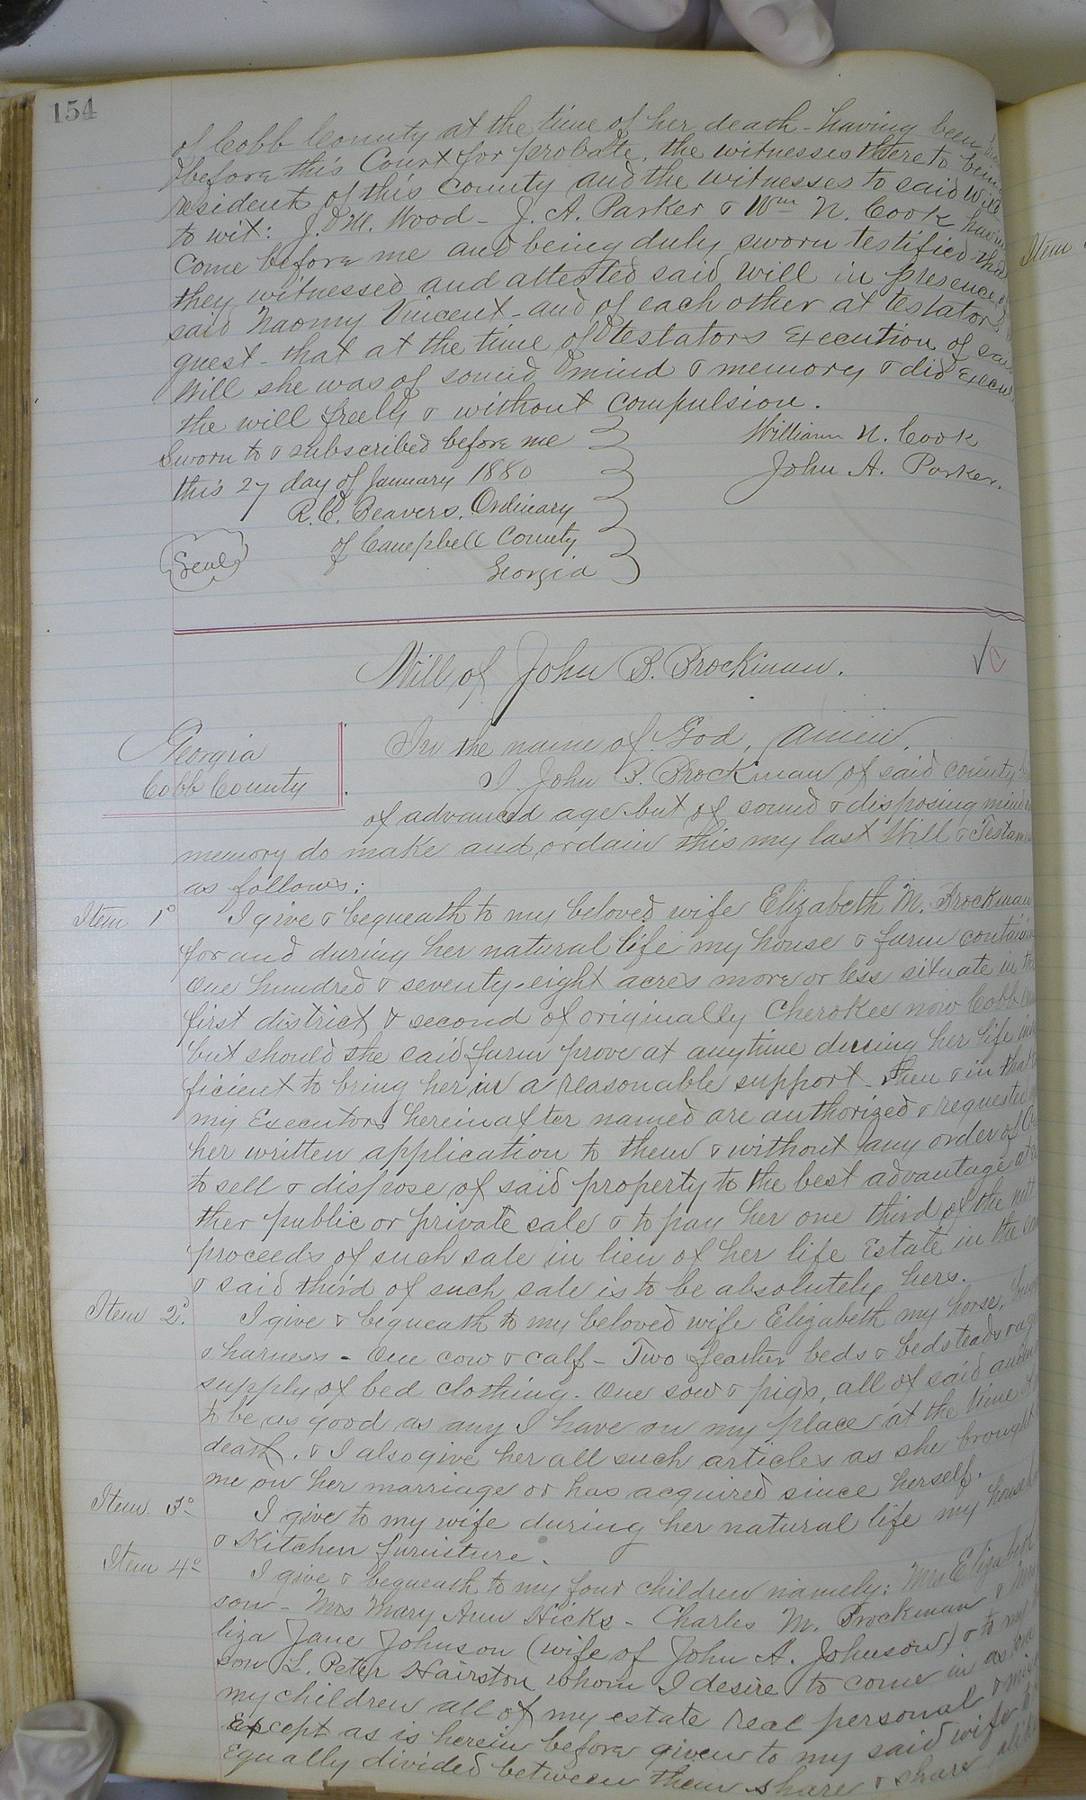 154
of Cobb County at the time of her death - having been
before this Court for probate, the witnesses thereto being
resident of this County and the witnesses to said Will
to wit: J. M. Wood - J. A. Parker & Wm N. Cook having
come before me and being duly sworn testified that
they witnessed and attested said Will in presence of
said Naomy Vincent - and of each other at testators
quest - that at the time of testators Execution of said
Will she was of sound mind & memory & did Execu
the will freely & without compulsion.
Sworn to & subscribed before me
William N. Cook
this 27 day of January 1880
John A. Parker.
R. C. Beavers, Ordinary
of Campbell County
Seal
Georgia
Will of John B. Brockman.
Georgia
Cobb County
In the name of God, Amen.
I John B. Brockman of said county
of advanced age but of sound & disposing mind
memory do make and ordain this my last Will & Testam
as follows:
Item 1o I give & bequeath to my beloved wife Elizabeth M. Brockman
for and during her natural life my house & farm containin
One hundred & seventy-eight acres more or less situate in the
first district & second of originally Cherokee now Cobb
but should she said farm prove at anytime during her life in
ficient to bring her in a reasonable support - Then & in that
my Executors hereinafter named are authorized & requested
her written application to them & without any order of
to sell & dispose of said property to the best advantage at
ther public or private sale & to pay her one third of the net
proceeds of such sale in lieu of her life Estate in the
& said third of such sale is to be absolutely hers.
Item 2o. I give & bequeath to my beloved wife Elizabeth my horse,
& harness - One cow & calf - Two feather beds & bedsteads & a
supply of bed clothing - One sow & pigs, all of said
to be as good as any I have on my place at the time
death. & I also give her all such articles as she brought
me on her marriage or has acquired since herself.
Item 3o I give to my wife during her natural life my househ
& Kitchen furniture.
Item 4o I give & bequeath to my four children namely: Mrs Elizabeth
son - Mrs Mary Ann Hicks - Charles M. Brockman &
liza Jane Johnson (wife of John A. Johnson) & to my
son L. Peter Hairston whom I desire to come in as one
my children all of my estate real personal & mix
Except as is herein before given to my said wife to
Equally divided between them share & share alike
Item